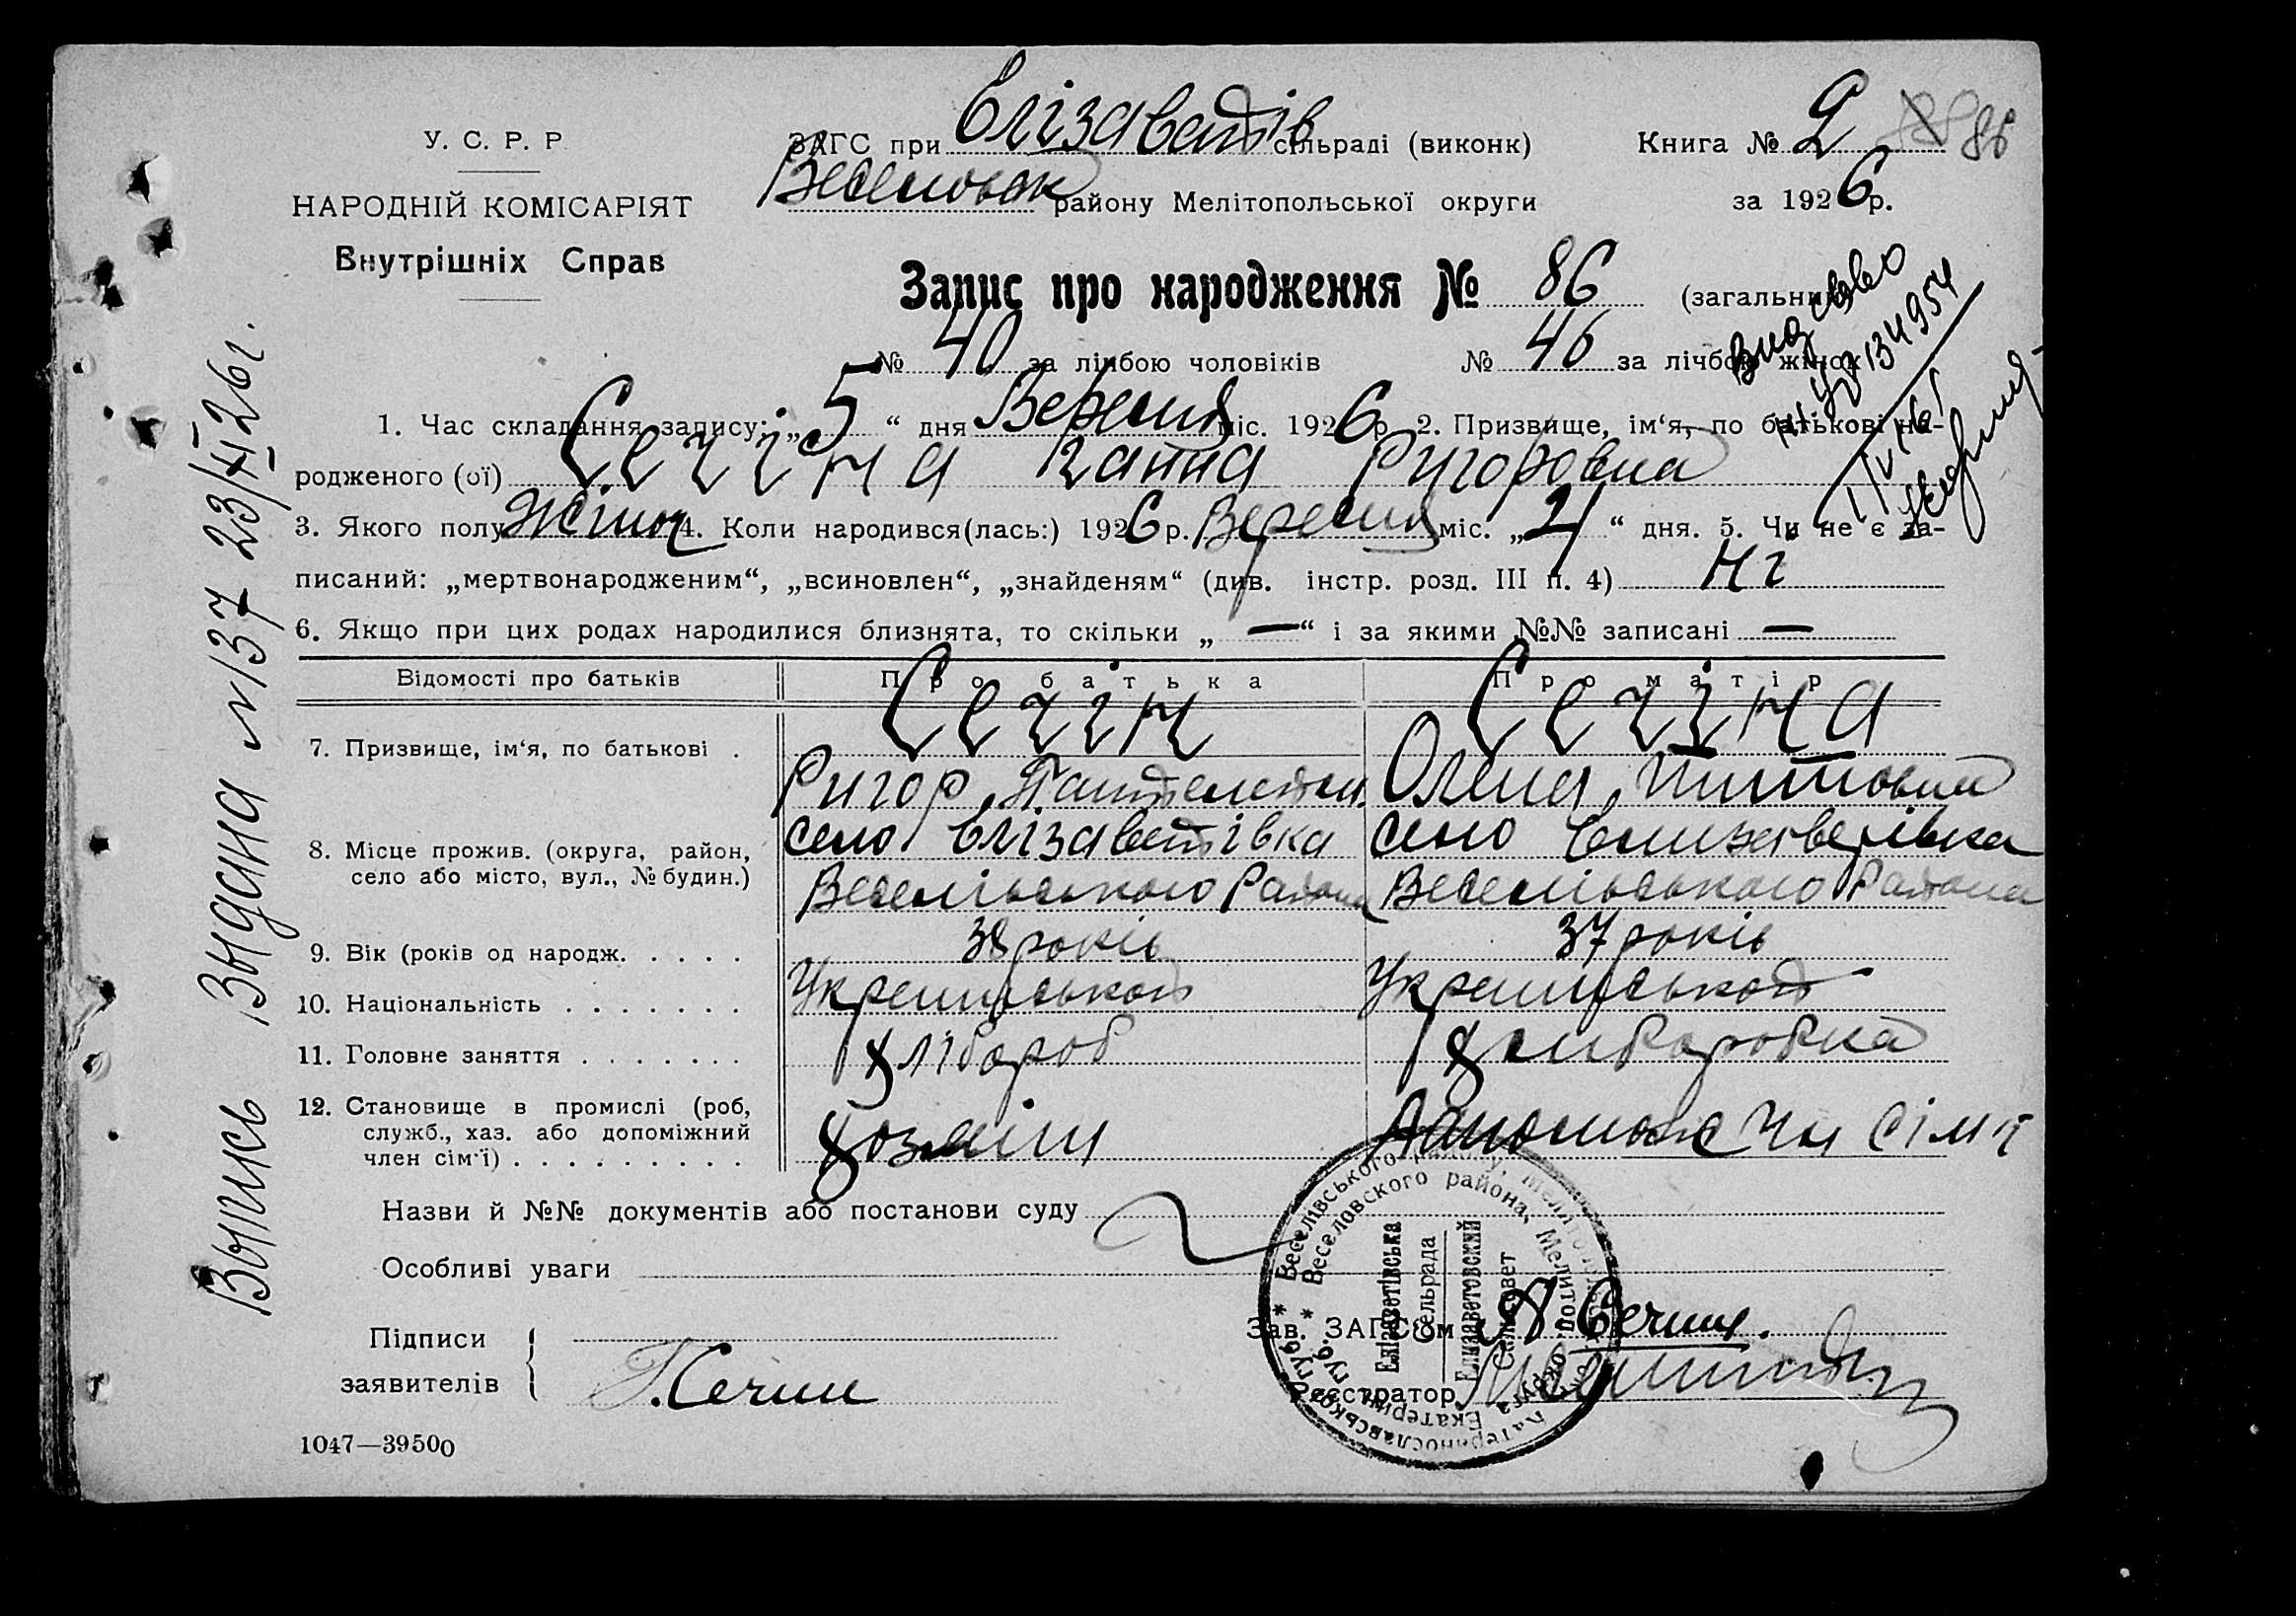 У. С. Р. Р.
НАРОДНІЙ КОМІСАРІЯТ
Внутрішніх Справ
ЗАГС при Єлізаветів сільраді (виконк)
Веселовск району Мелітопольської округи
Книга № 2 86
за 1926 р.
Запис про народження № 86 (загальний)
№ 40 за лічбою чоловіків № 46 за лічбою жінок
1. Час складання запису: „5“ дня Вересня міс. 1926 р. 2. Призвище, ім‘я, по батькові на-
родженого (ої) Сечіна Ганна Григоровна
3. Якого полу Жіноч 4. Коли народився(лась:) 1926 р. Вересня міс. „4“ дня. 5. Чи не є за-
писаний: „мертвонародженим“, „всиновлен“, „знайденям“ (див. інстр. розд. III п. 4) Ні
6. Якщо при цих родах народилися близнята, то скільки „ — “ і за якими №№ записані —
Відомості про батьків Про батька Про матір
7. Призвище, ім‘я, по батькові . Сечін Сечіна
Григор Олена Титовна
8. Місце прожив. (округа, район, село Єлізаветівка село Єлизаветівка
село або місто, вул., № будин.) Веселівського Района Веселівського Района
9. Вік (років од народж. . . . . 38 років 37 років
10. Національність . . . . . . .
11. Головне заняття . . . . . . . хлібороб хлиборобка
12. Становище в промислі (роб,
служб., хаз. або допоміжний хозяїн сімї
член сім‘ї) . . . . . . . . .
Назви й №№ документів або постанови суду
Особливі уваги
Підписи
заявителів Г. Сечин
Зав. ЗАГСом Сечин.
Реєстратор
1047—39500
Выпись Выдана №137 23/II 26 г.
Видано
134954
Веселівського
Веселовского района, Мелитоп. округа
Екатерин. губ.
Катеринославської губ.
Елізаветівська
сельрада
Елизаветовский
сельсовет